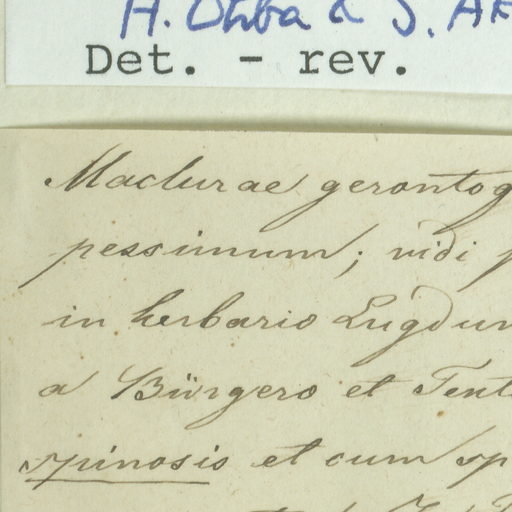 H. Ohba & S. Ak
Det. - rev.
Maclurae gerontog
pessimum; vidi p
in herbario Lugdun
a Bürgero et Text
spinosis et cum sp